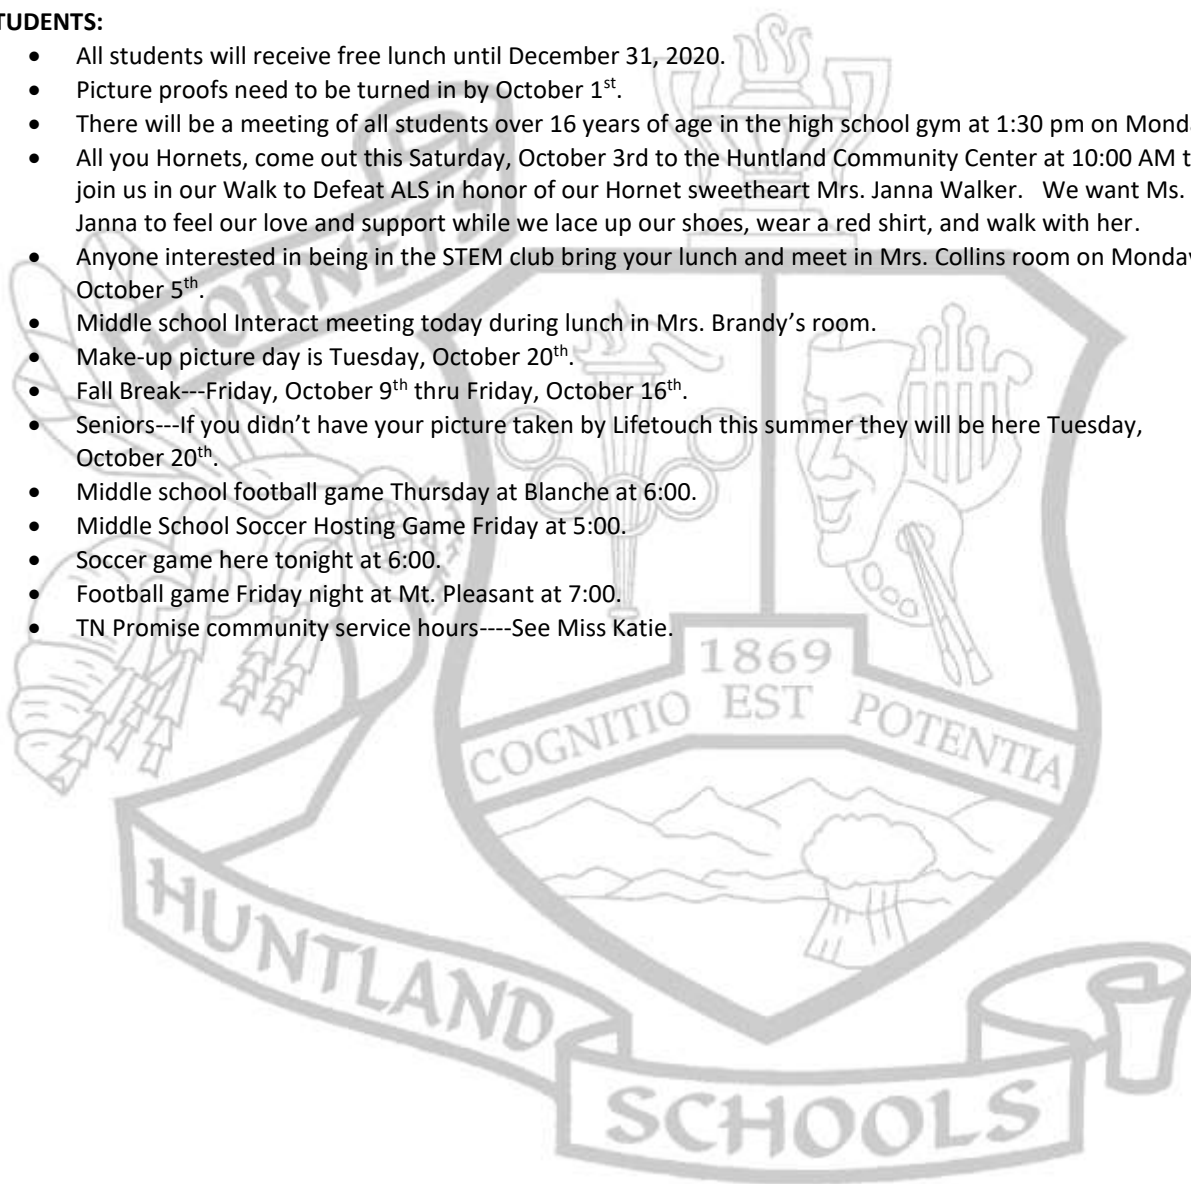 TUDENTS:
• All students will receive free lunch until December 31, 2020.
• Picture proofs need to be turned in by October 1st.
• There will be a meeting of all students over 16 years of age in the high school gym at 1:30 pm on Mond
• All you Hornets, come out this Saturday, October 3rd to the Huntland Community Center at 10:00 AM t
join us in our Walk to Defeat ALS in honor of our Hornet sweetheart Mrs. Janna Walker. We want Ms.
Janna to feel our love and support while we lace up our shoes, wear a red shirt, and walk with her.
• Anyone interested in being in the STEM club bring your lunch and meet in Mrs. Collins room on Monday
October 5th.
• Middle school Interact meeting today during lunch in Mrs. Brandy’s room.
• Make-up picture day is Tuesday, October 20th.
• Fall Break---Friday, October 9th thru Friday, October 16th.
• Seniors---If you didn’t have your picture taken by Lifetouch this summer they will be here Tuesday,
October 20th.
• Middle school football game Thursday at Blanche at 6:00.
• Middle School Soccer Hosting Game Friday at 5:00.
• Soccer game here tonight at 6:00.
• Football game Friday night at Mt. Pleasant at 7:00.
• TN Promise community service hours----See Miss Katie.
HORNETS
1869
COGNITIO EST POTENTIA
HUNTLAND
SCHOOLS